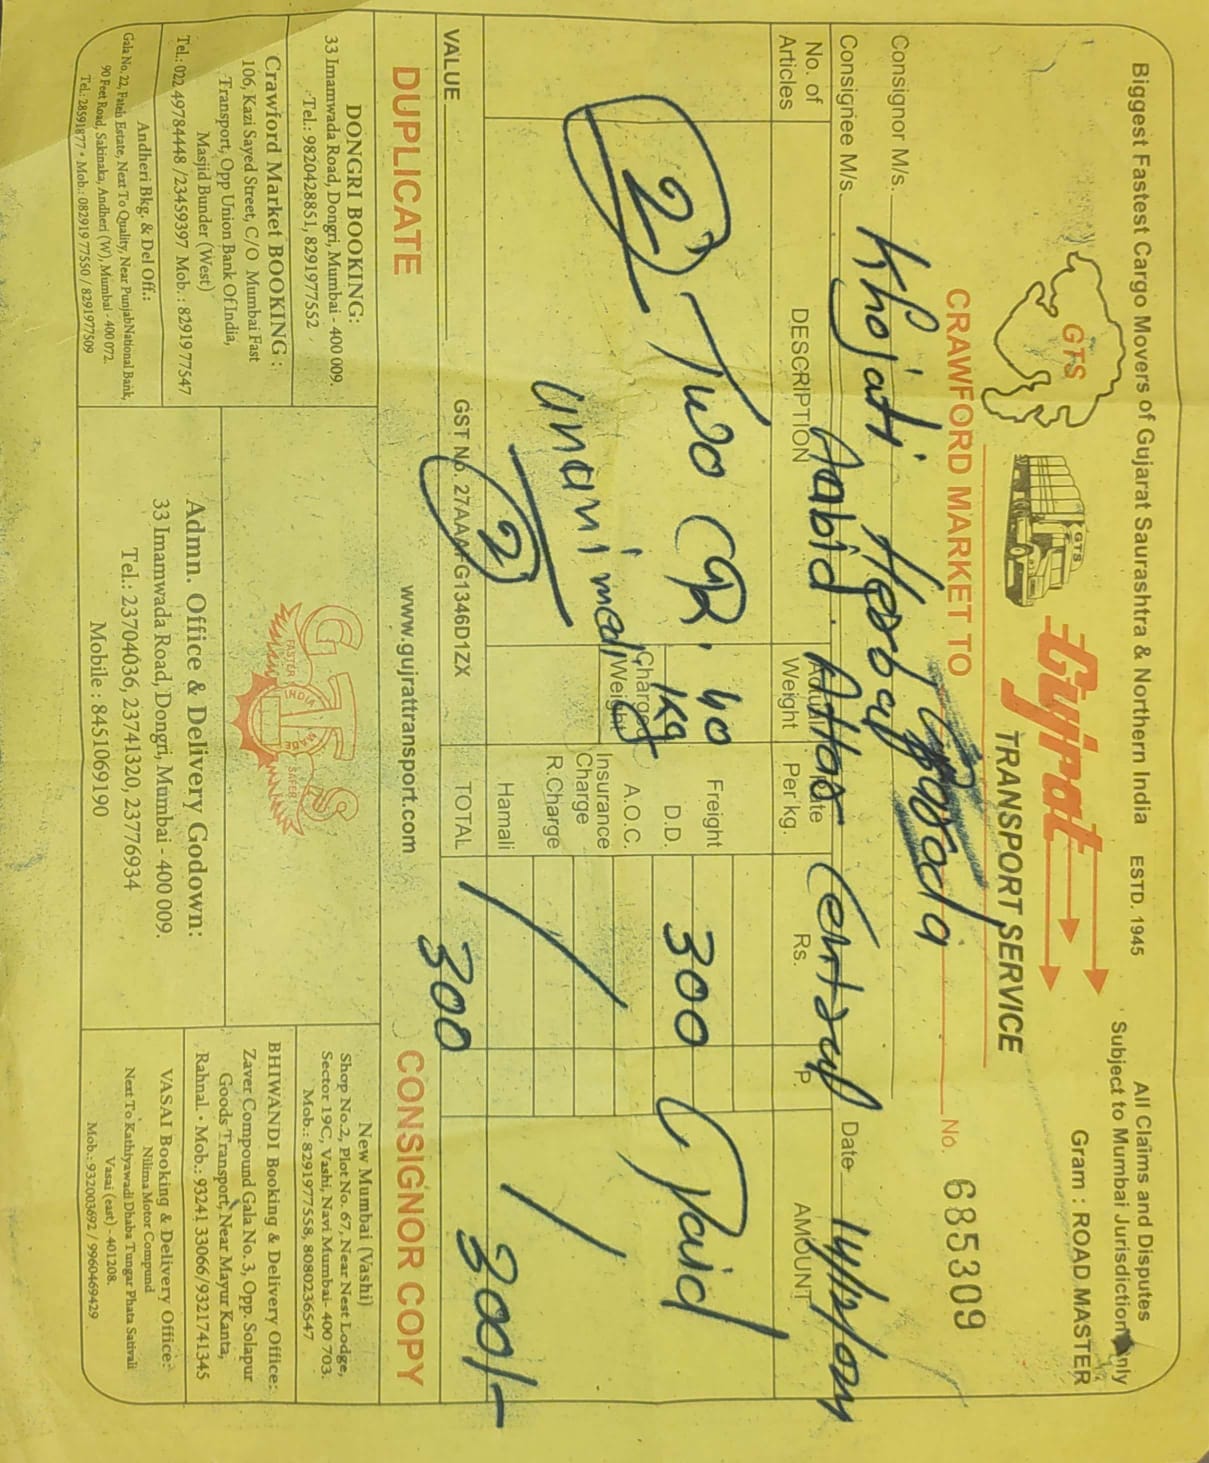 Biggest Fastest Cargo Movers of Gujarat Saurashtra & Northern India ESTD. 1945
All Claims and Disputes
Subject to Mumbai Jurisdiction Only
Gram : ROAD MASTER
GTS
GTS
Gujrat
TRANSPORT SERVICE
CRAWFORD MARKET TO
No. 685309
Consignor M/s. Khojati
Consignee M/s. Aabid Attar
Date
No. of Articles
DESCRIPTION
Actual Weight
Rate Per kg.
Rs.
P.
AMOUNT
2 Two
40 kg
Charged Weight
Freight
D.D. 300 Paid
A.O.C.
Insurance Charge
R.Charge
Hamali
2
300/-
VALUE
GST No. 27AAAFG1346D1ZX
TOTAL 300
DUPLICATE
www.gujrattransport.com
CONSIGNOR COPY
DONGRI BOOKING:
33 Imamwada Road, Dongri, Mumbai - 400 009.
Tel.: 9820428851, 8291977552
Crawford Market BOOKING :
106, Kazi Sayed Street, C/O Mumbai Fast
Transport, Opp Union Bank Of India,
Masjid Bunder (West)
Tel.: 022 49784448 /23459397 Mob. : 82919 77547
Andheri Bkg. & Del Off.:
Gala No. 22, Fateh Estate, Next To Quality, Near PunjabNational Bank,
90 Feet Road, Sakinaka, Andheri (W), Mumbai - 400 072.
Tel.: 28591877 • Mob.: 082919 77550 / 8291977509
GTS
FASTER
SAFER
INDIA
MADE
Admn. Office & Delivery Godown:
33 Imamwada Road, Dongri, Mumbai - 400 009.
Tel.: 23704036, 23741320, 23776934
Mobile : 8451069190
New Mumbai (Vashi)
Shop No.2, Plot No. 67, Near Nest Lodge,
Sector 19C, Vashi, Navi Mumbai- 400 703.
Mob.: 8291977558, 8080236547
BHIWANDI Booking & Delivery Office:
Zaver Compound Gala No. 3, Opp. Solapur
Goods Transport, Near Mayur Kanta,
Rahnal. • Mob.: 93241 33066/9321741345
VASAI Booking & Delivery Office:
Nilima Motor Compund
Next To Kathiyawadi Dhaba Tungar Phata Sativali
Vasai (east) - 401208.
Mob.: 932003692 / 9960469429